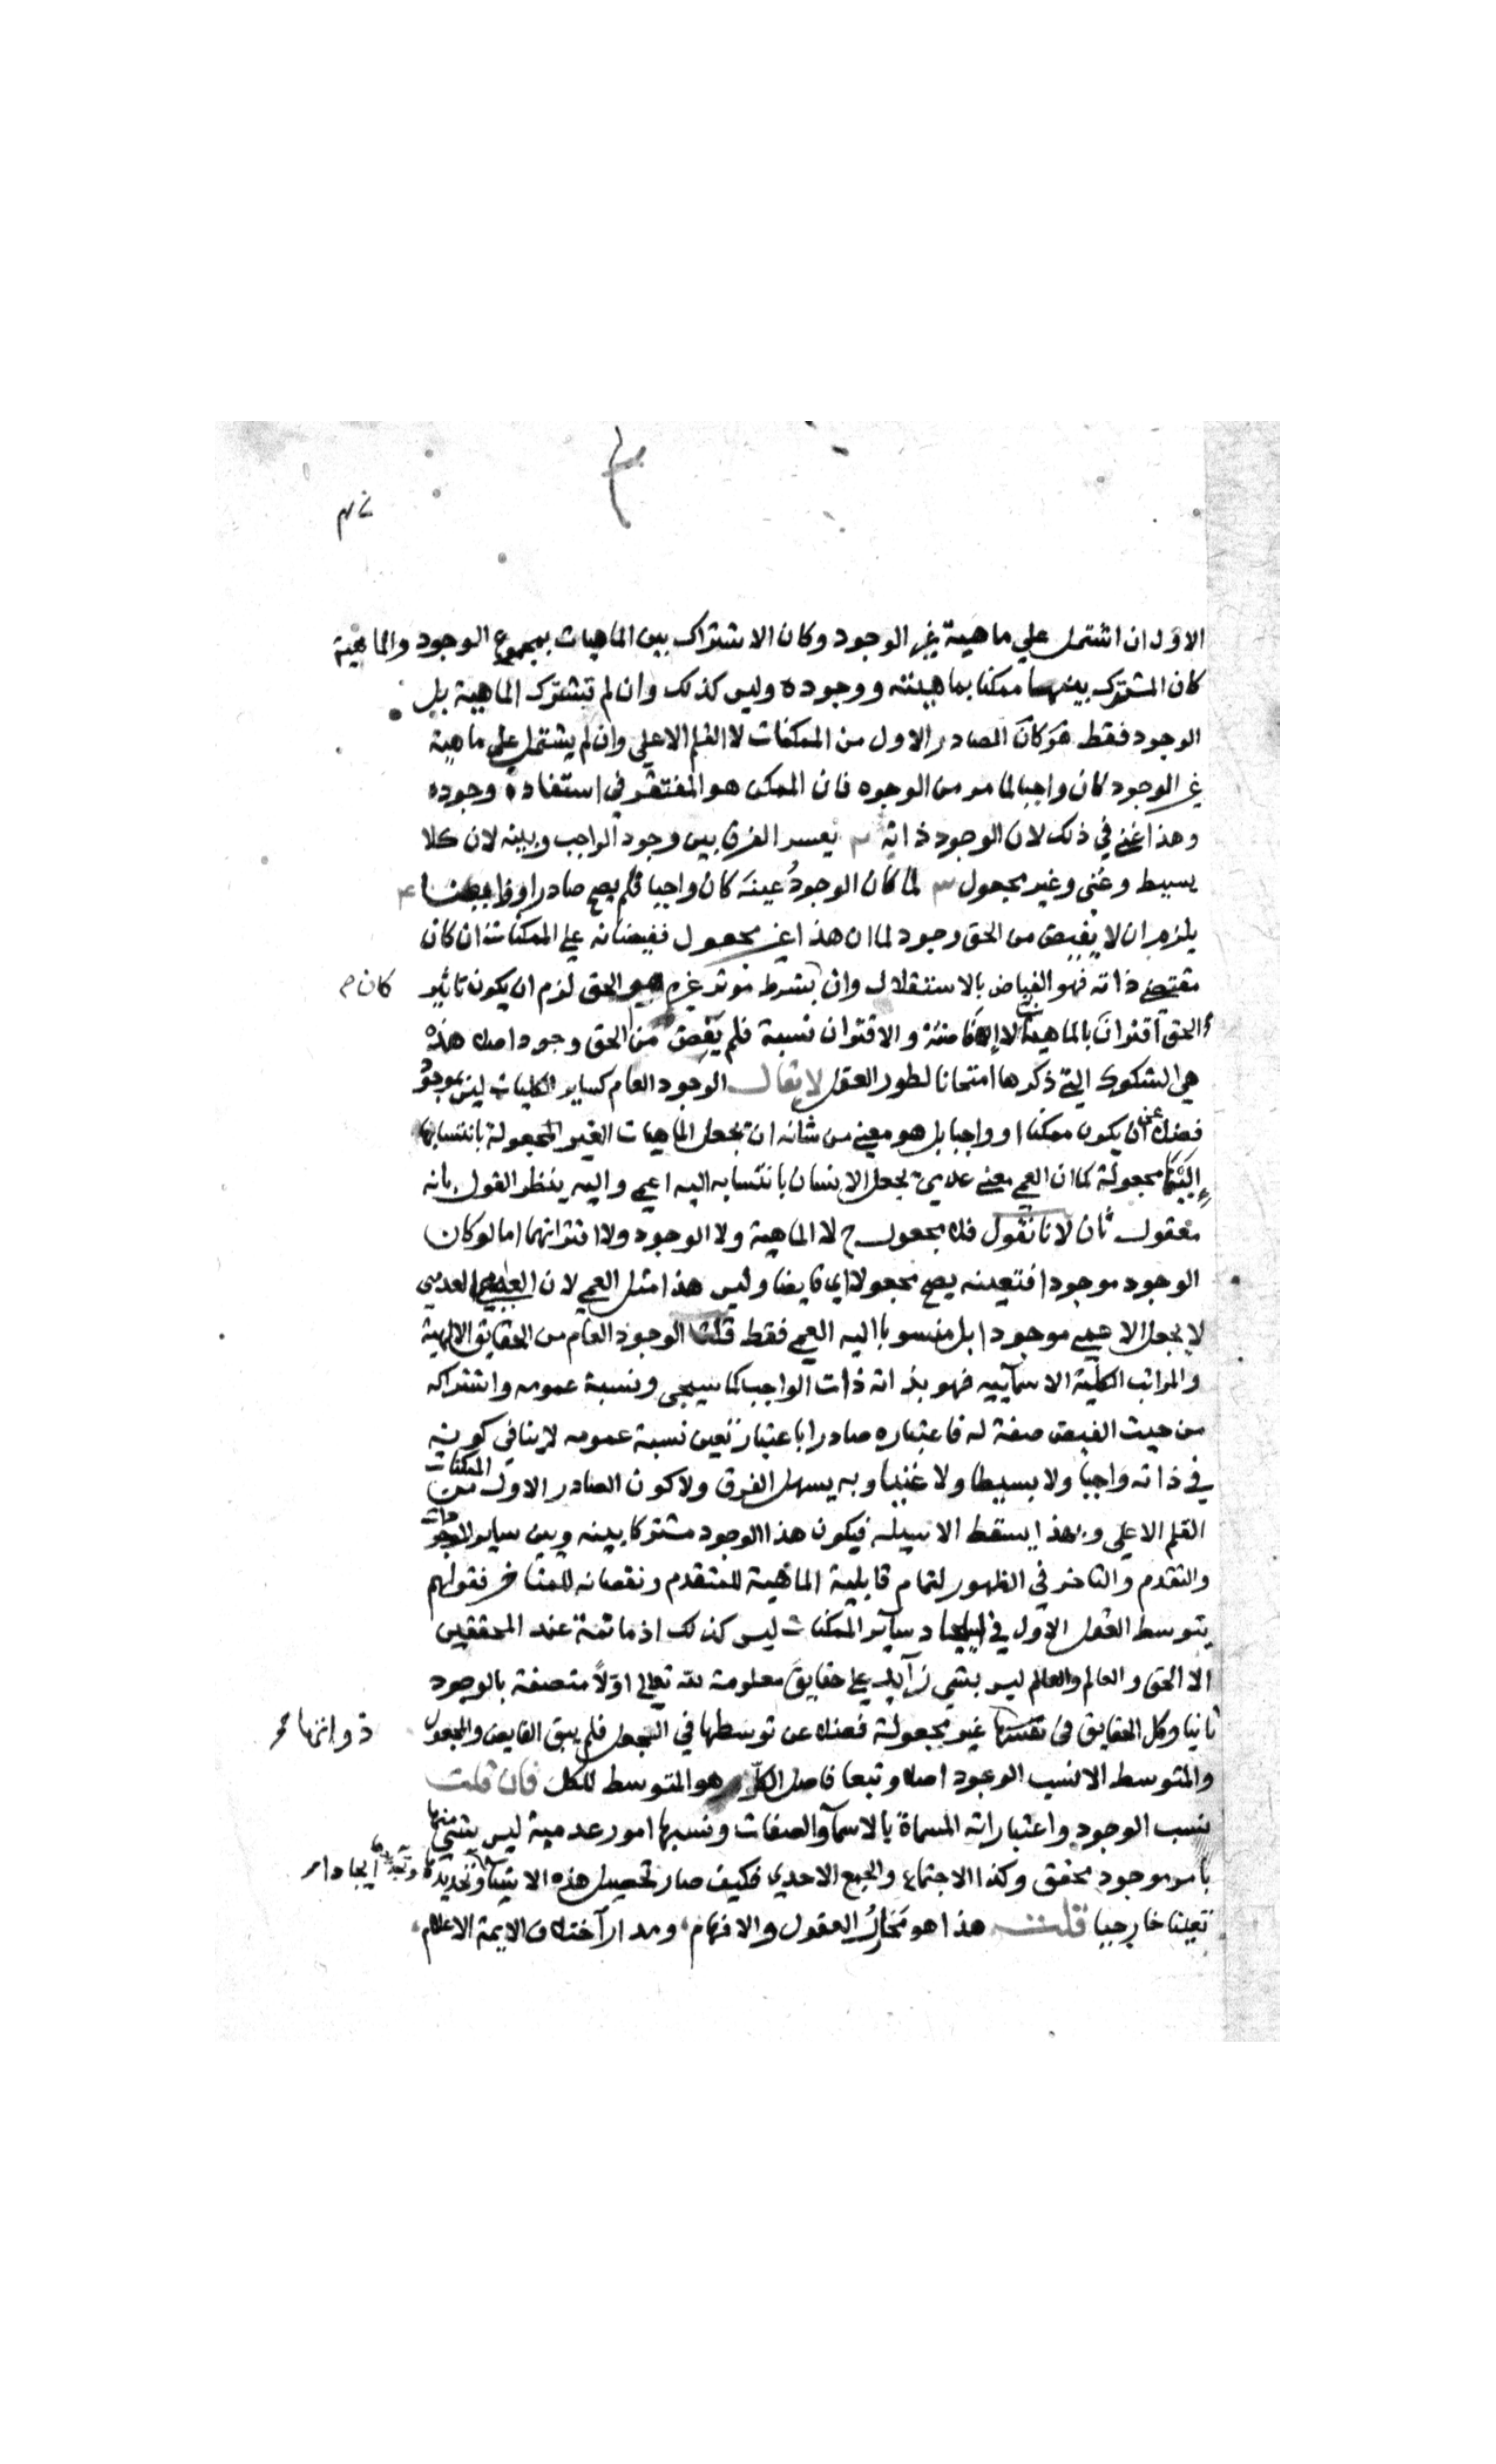 الاول ان اشتمل علي ماهية غير الوجود وكان الاشتراك بين الماهيات بمجموع الوجود والماهية
كان المشترك بينهما ممكنا بماهيته ووجوده وليس كذلك وان لم تشترك الماهية بل
الوجود فقط هو كان الصادر الاول من الممكنات لا القلم الاعلي وان لم يشتمل علي ماهية
غير الوجود كان واجبا لما مر من الوجوه فان الممكن هو المفتقر في استفادة وجوده
وهذا غني في ذلك لان الوجود ذاته ٢ يعسر الفرق بين وجود الواجب وبينه لان كلا
بسيط وغني وغير مجعول ٣ لما كان الوجود عينه كان واجبا فلم يصح صادرا وفايضا ٤
يلزم ان لا يفيض من الحق وجود لما ان هذا غير مجعول ففيضانه علي الممكنات ان كان
مقتضي ذاته فهو الفياض بالاستقلال وان بشرط موثر غيره هو الحق لزم ان يكون تاثير
كان م
الحق اقتران بالماهية لا افاضته والاقتران نسبة فلم يفض من الحق وجود اصلا هذه
هي الشكوك التي ذكرها امتحانا لطور العقل لا يقال الوجود العام كساير الكليات ليس بموجود
فضلا عن ان يكون ممكنا او واجبا بل هو معني من شانه ان تجعل الماهيات الغير المجعولة بانتسابها
اليه مجعولة كما ان العمي معني عدمي يجعل الانسان بانتسابه اليه اعمي واليه ينظر القول بانه
معقول ثان لانا نقول فلا مجعول ح لا الماهية ولا الوجود ولا اقترانهما اما لو كان
الوجود موجودا فتعينه يصح مجعولا اي فايضا وليس هذا مثل العمي لان العمي العدمي
لا يجعل الاعمي موجودا بل منسوبا اليه العمي فقط قلت الوجود العام من الحقايق الالهية
والمراتب الكلية الاسمآييه فهو بذاته ذات الواجب كما سيجي ونسبة عمومه واشتراكه
من حيث الفيض صفة له فاعتباره صادرا باعتبار تعين نسبة عمومه لا ينافي كونه
في ذاته واجبا ولا بسيطا ولا غنيا وبه يسهل الفرق ولا كون الصادر الاول من الممكنات
القلم الاعلي وبهذا يسقط الاسيلة فيكون هذا الوجود مشتركا بينه وبين ساير الموجودات
والتقدم والتاخر في الظهور لتمام قابلية الماهية للمتقدم ونقصانه للمتاخر فقولهم
بتوسط العقل الاول في ايجاد سآير الممكنات ليس كذلك اذ ما ثمة عند المحققين
الا الحق والعالم والعالم ليس بشي زآيد علي حقايق معلومة لله تعالي اولا متصفة بالوجود
ثانيا وكل الحقايق في نفسها غير مجعولة فضلا عن توسطها في الجعل فلم يبق الفايض والمجعول
والمتوسط الا نسب الوجود اصلا وتبعا فاصل الكل هو المتوسط للكل فان قلت
نسب الوجود واعتباراته المسماة بالاسمآ والصفات ونسبها امور عدمية ليس بشي منها
بامر موجود محقق وكذا الاجتماع والجمع الاحدي فكيف صار تحصيل هذه الاشيا
تعينا خارجيا قلت هذا هو مَحَارُ العقول والافهام ومدار آختلاف الايمة الاعلام